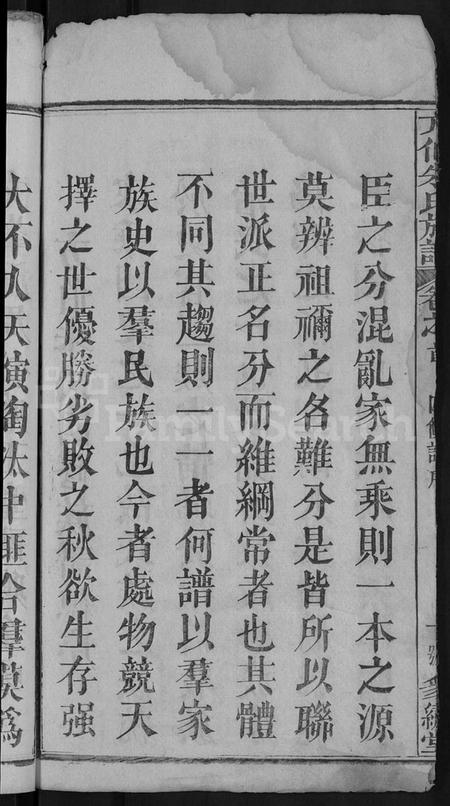 氏族譜
臣之分混亂家無乘則一本之源
莫辨祖禰之名難分是皆所以聯
世派正名分而維綱常者也其體
不同其趨則一一者何譜以羣家
族史以羣民族也今者處物競天
擇之世優勝劣敗之秋欲生存强
大不入天演陶汰中匪合羣莫爲
FamilySearch